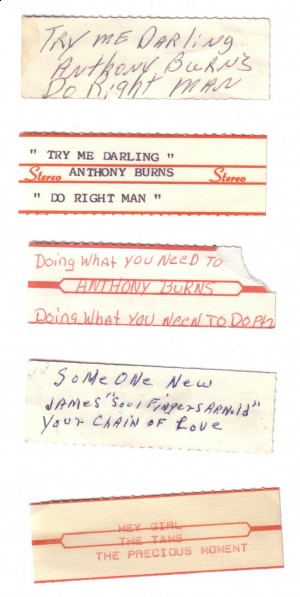 TRY ME DARLING
ANTHONY BURNS
Do Right MAN
" TRY ME DARLING "
Stereo ANTHONY BURNS Stereo
" DO RIGHT MAN "
Doing WHAT YOU NEED TO
ANTHONY BURNS
Doing WHAT YOU NEEN TO DO Pt2
SOMEONE New
JAMES "Soul Fingers ARNOLD"
YOUR CHAIN OF LOVE
HEY GIRL
THE TAMS
THE PRECIOUS MOMENT